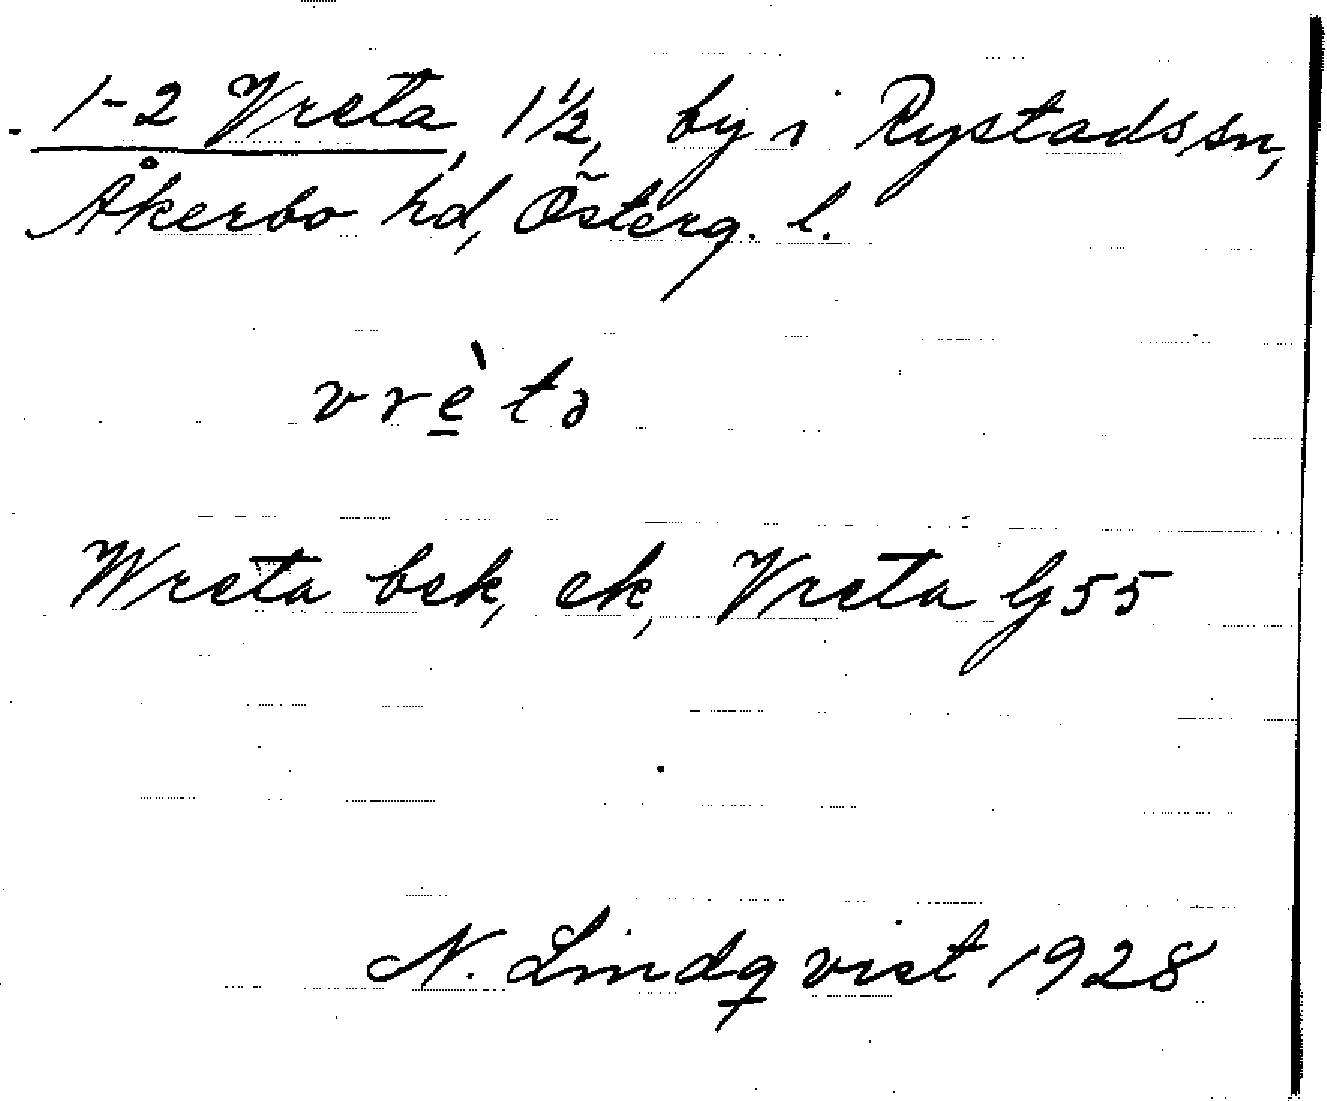 1-2 Vreta, 1 1/2, by i Rystads sn,
Åkerbo hd, Österg. l.
vrè̠tə
Wreta bek, ek, Vreta G55
N. Lindqvist 1928